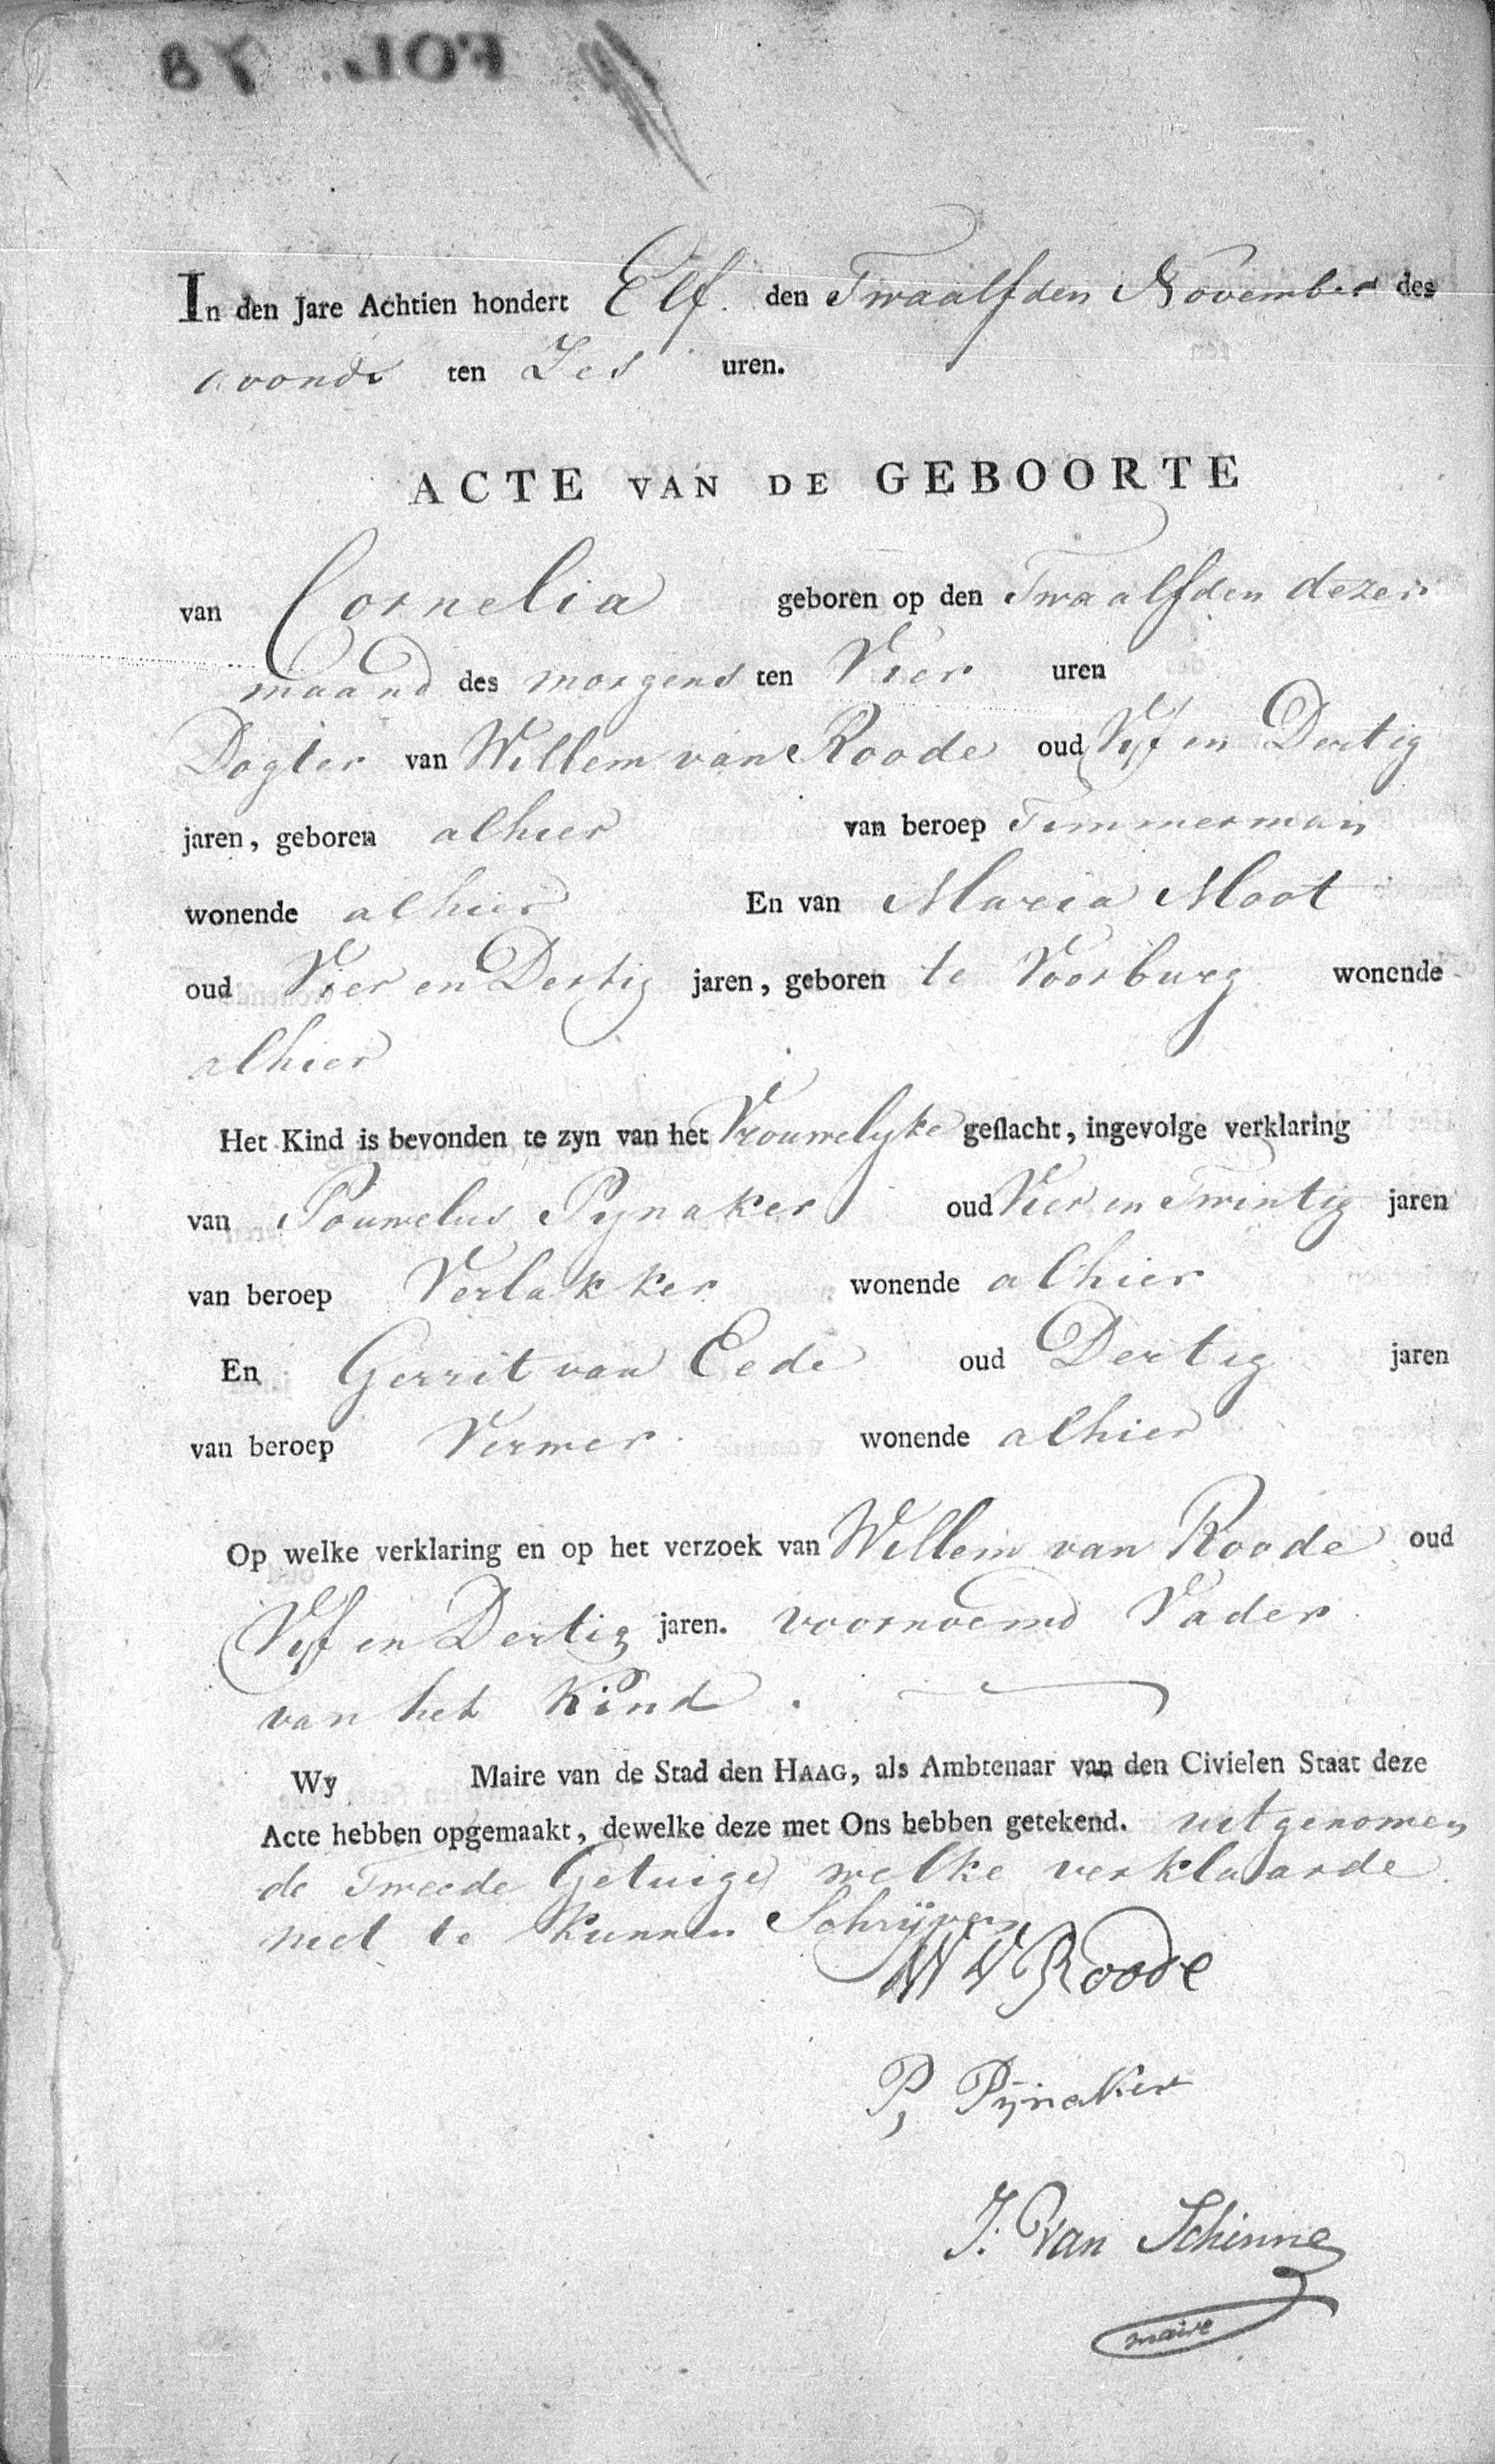 FOL. 78
In den Jare Achtien hondert Elf. den Twaalfden November des
avonds ten Zes uren.
ACTE VAN DE GEBOORTE
van Cornelia geboren op den Twaalfden dezer
maand des morgens ten Vier uren
Dogter van Willem van Roode oud Vyf en Dertig
jaren, geboren alhier van beroep Timmerman
wonende alhier En van Maria Moot
oud Vier en Dertig jaren, geboren te Voorburg wonende
alhier
Het Kind is bevonden te zyn van het Vrouwelyke geslacht, ingevolge verklaring
van Pouwelus Pynaker oud Vier en Twintig jaren
van beroep Verlakker wonende alhier
En Gerrit van Eede oud Dertig jaren
van beroep Verwer wonende alhier
Op welke verklaring en op het verzoek van Willem van Roode oud
Vyf en Dertig jaren. voornoemd Vader
van het Kind.
Wy Maire van de Stad den HAAG, als Ambtenaar van den Civielen Staat deze
Acte hebben opgemaakt, dewelke deze met Ons hebben getekend. uitgenomen
de Tweede Getuige welke verklaarde
niet te kunnen Schrijven
W V Roode
P, Pijnaker
J. Van Schinne
maire